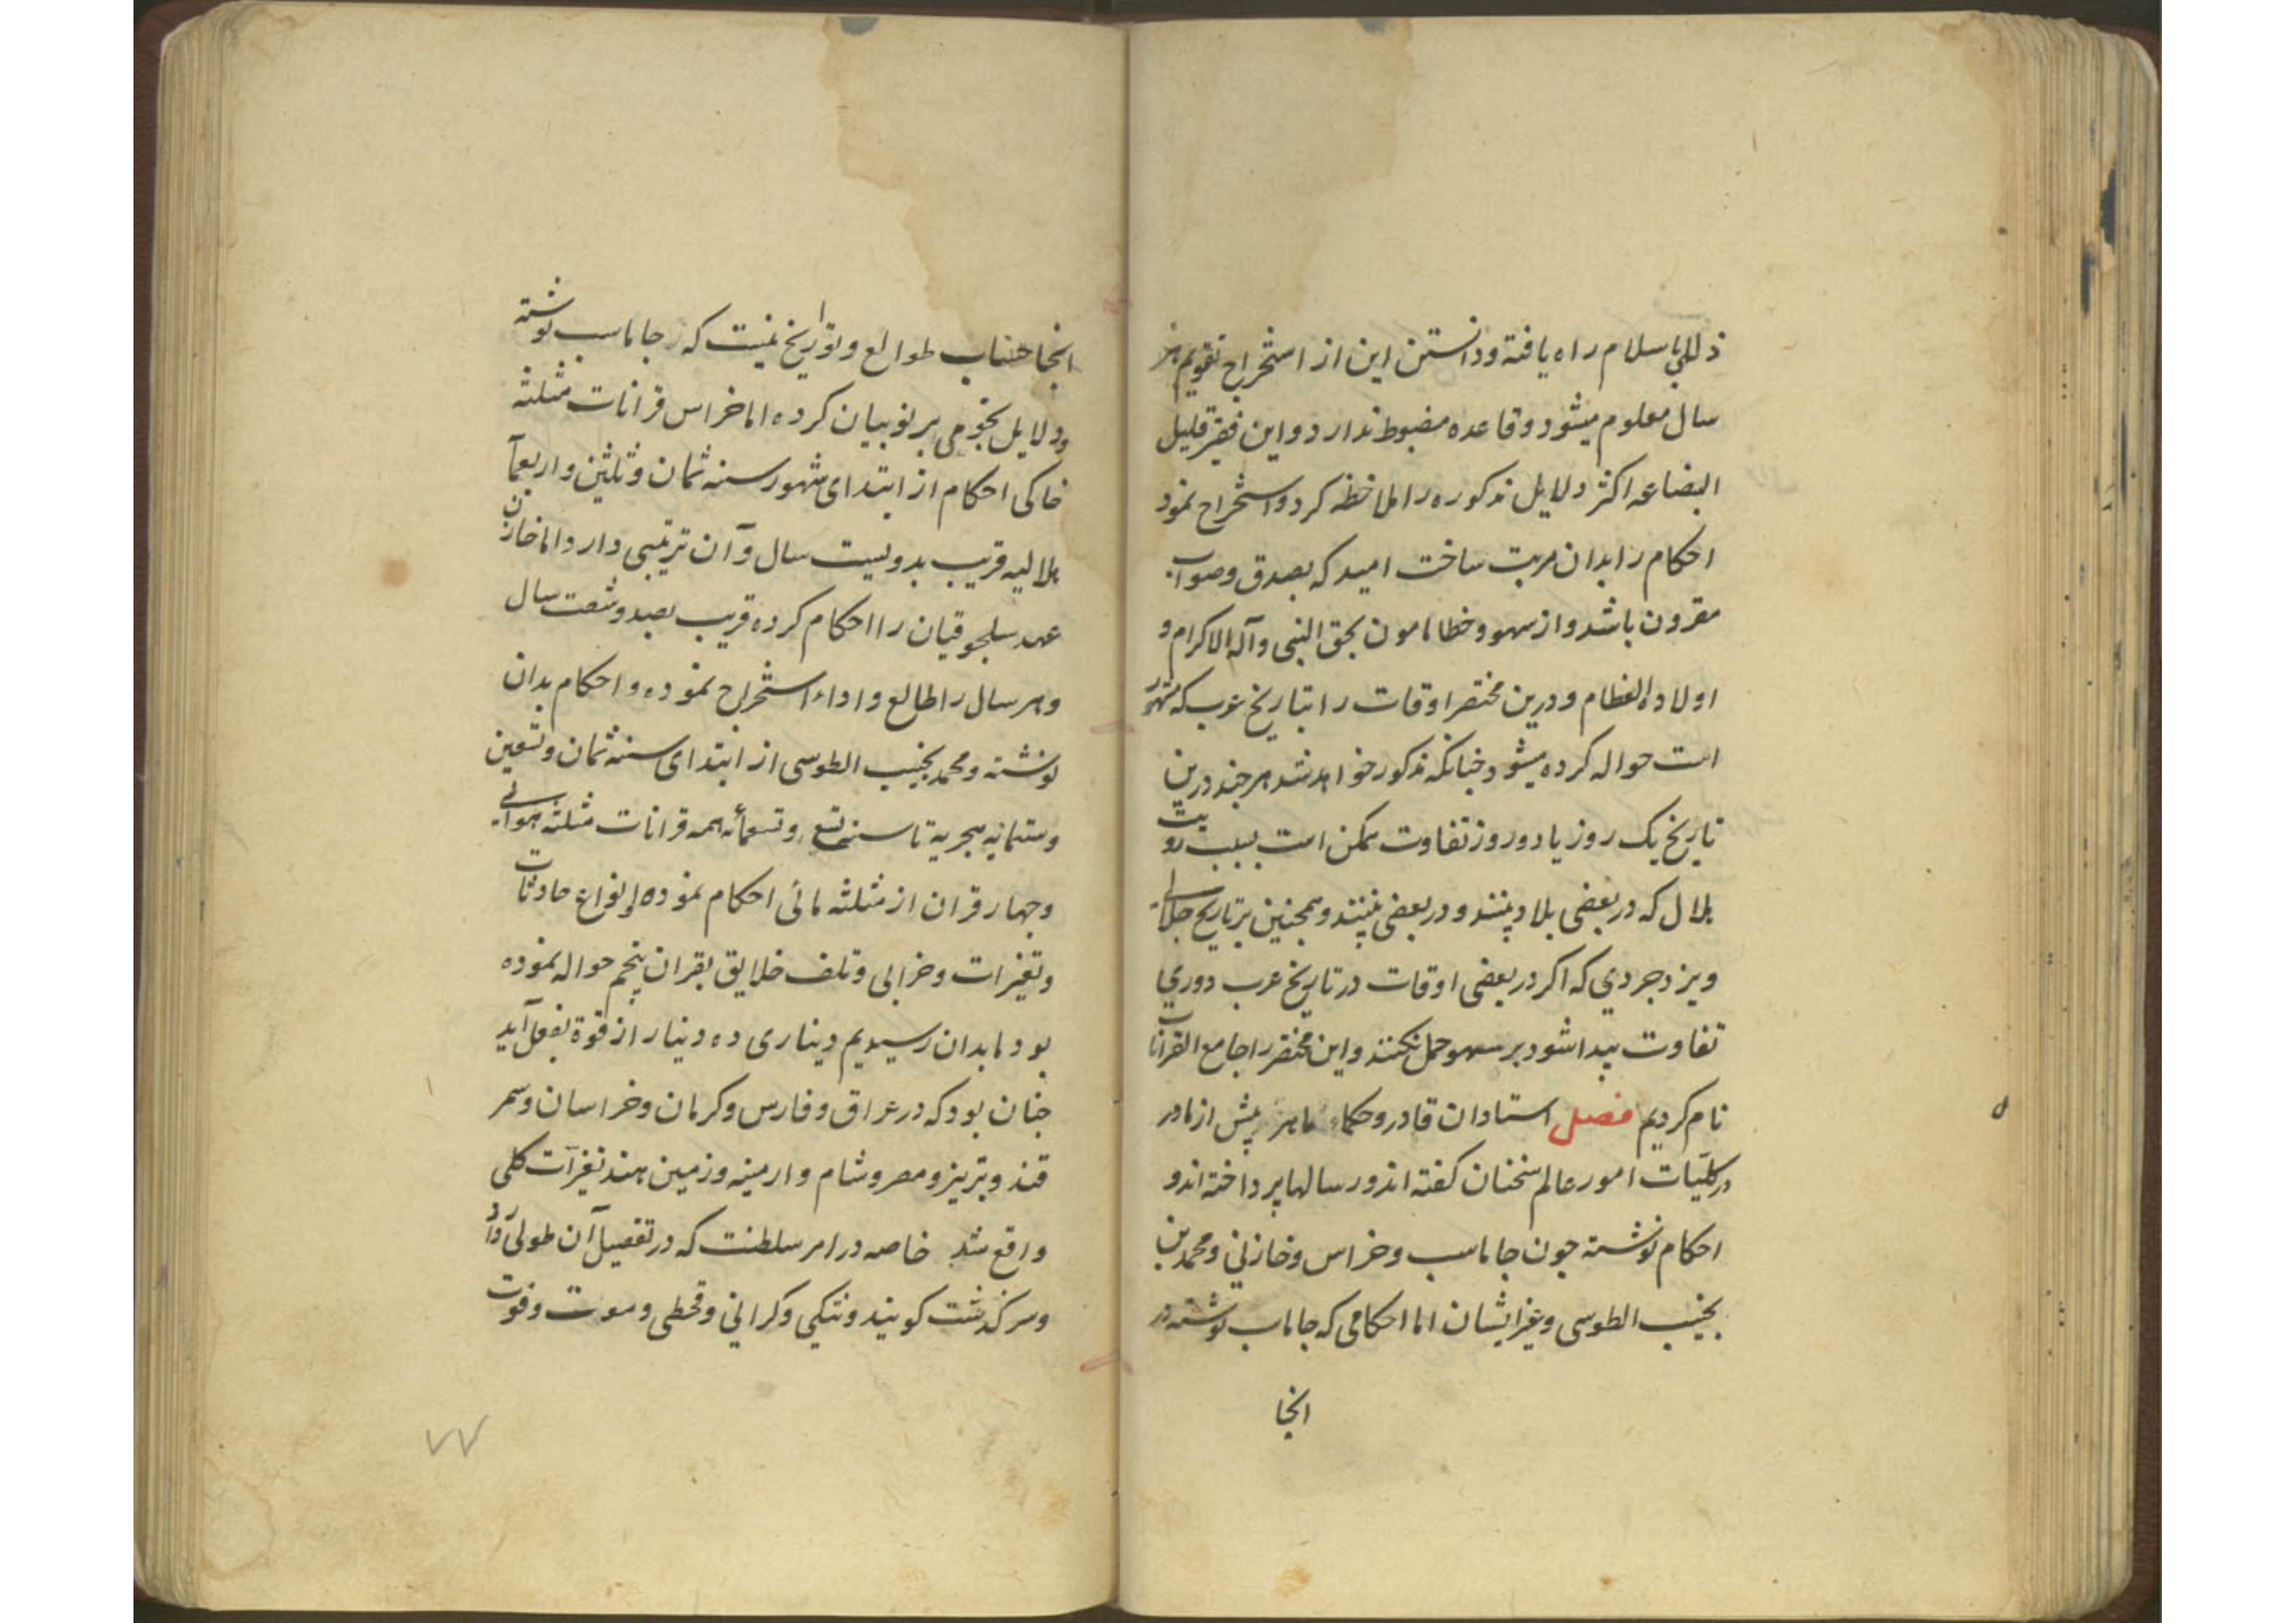 ذللی باسلام راه یافته ودانستن این از استخراج تقویم هر
سال معلوم میشود وقاعده مضبوط ندارد واین فقیر قلیل
البضاعه اکثر دلایل مذکوره را ملاخظه کرد واستخراج نمود
احکام را بدان مرتب ساخت امید که بصدق وصواب
مقرون باشد واز سهو وخطا مامون بحق النبی وآله الاکرام و
اولاده العظام ودرین مختصر اوقات را بتاریخ عرب که مشهور
است حواله کرده میشود چنانکه مذکور خواهد شد هر چند درین
تاریخ یک روز یا دو روز تفاوت ممکن است بسبب رویت
هلال که در بعضی بلاد بینند و در بعضی نبینند وهمچنین بر تاریخ جلالی
ویزدجردي که اکر در بعضی اوقات در تاریخ عرب دوري
تفاوت پیدا شود بر سهو حمل نکنند واین مختصر را جامع القرانات
نام کردیم فصل استادان قادر وحکماء ماهر پیش از ما در
در کلیّات امور عالم سخنان کفته اند و رسالها پرداخته اند و
احکام نوشته چون جاماسب وخراس وخازنی ومحمد بن
نجیب الطوسی وغیر ایشان اما احکامی که جاماسب نوشته در
انجا
انجا حساب طوالع وتواریخ نیست که جاماسب نوشته
ودلایل نجومی بر تو بیان کرده اما خراس قرانات مثلثه
خاکی احکام از ابتدای شهور سنه ثمان وثلثین واربعمآ
هلالیه قریب بدویست سال وآن ترتیبی دارد اما خازن
عهد سلجوقیان را احکام کرده قریب بصد وشصت سال
وهر سال را طالع واداء استخراج نموده و احکام بدان
نوشته ومحمد نجیب الطوسی از ابتدای سنه ثمان وتسعین
وستمایه هجریه تا سنه تسع وتسعمائه همه قرانات مثلثه هوائی
وچهار قران از مثلثه مائی احکام نموده وانواع حادثات
وتغیرات وخرابی وتلف خلایق بقران پنجم حواله نموده
بود ما بدان رسیدیم دیناری ده دینار از قوة بفعل آید
چنان بود که در عراق وفارس وکرمان وخراسان وسمر
قند وتبریز ومصر وشام وارمینه وزمین هند تغیرات کلی
واقع شد خاصه در امر سلطنت که در تفصیل آن طولی دارد
وسر کذشت کویند وتنکی وکرانی وقحطی وموت وفوت
۷۷